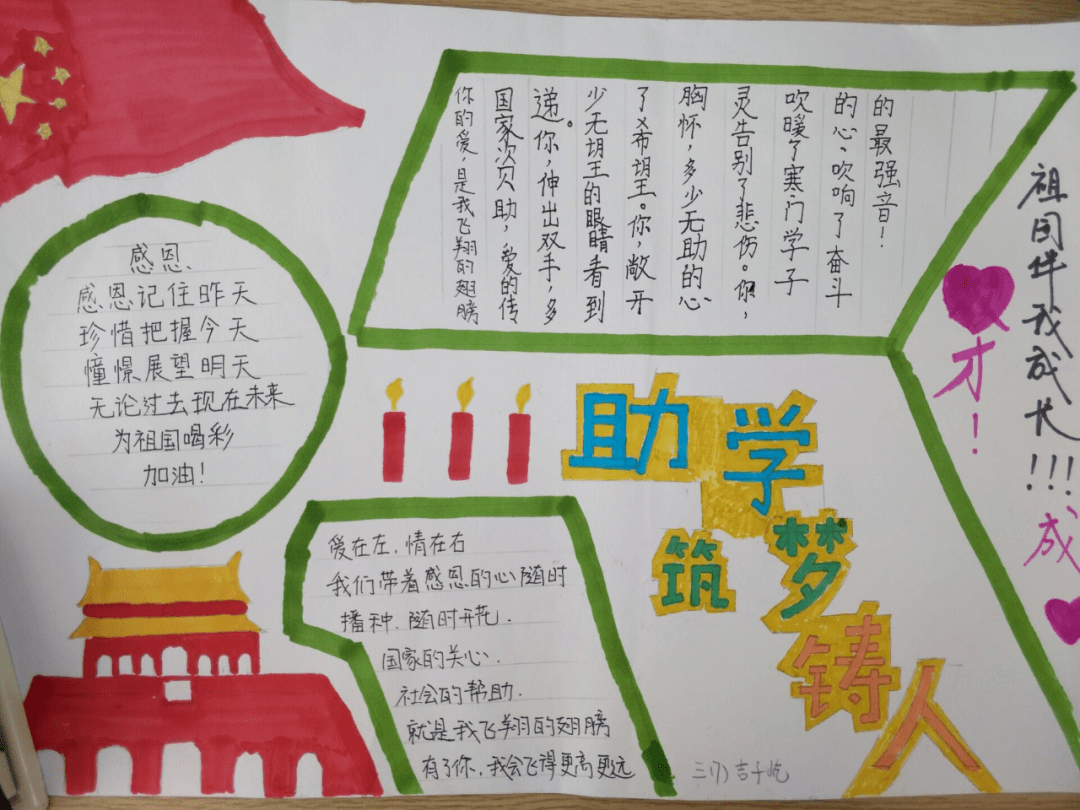 你的爱，是我飞翔的翅膀
国家资助，爱的传
递。你，伸出双手，多
少无望的眼睛看到
了希望。你，敞开
胸怀，多少无助的心
灵告别了悲伤。你，
吹暖了寒门学子
的心，吹响了奋斗
的最强音！
祖国伴我成长!!!
成
才！
感恩、
感恩记住昨天
珍惜把握今天
憧憬展望明天
无论过去现在未来
为祖国喝彩
加油！
助学
筑梦
铸人
爱在左，情在右
我们带着感恩的心随时
播种，随时开花.
国家的关心.
社会的帮助.
就是我飞翔的翅膀
有了你，我会飞得更高更远
三(7) 吉